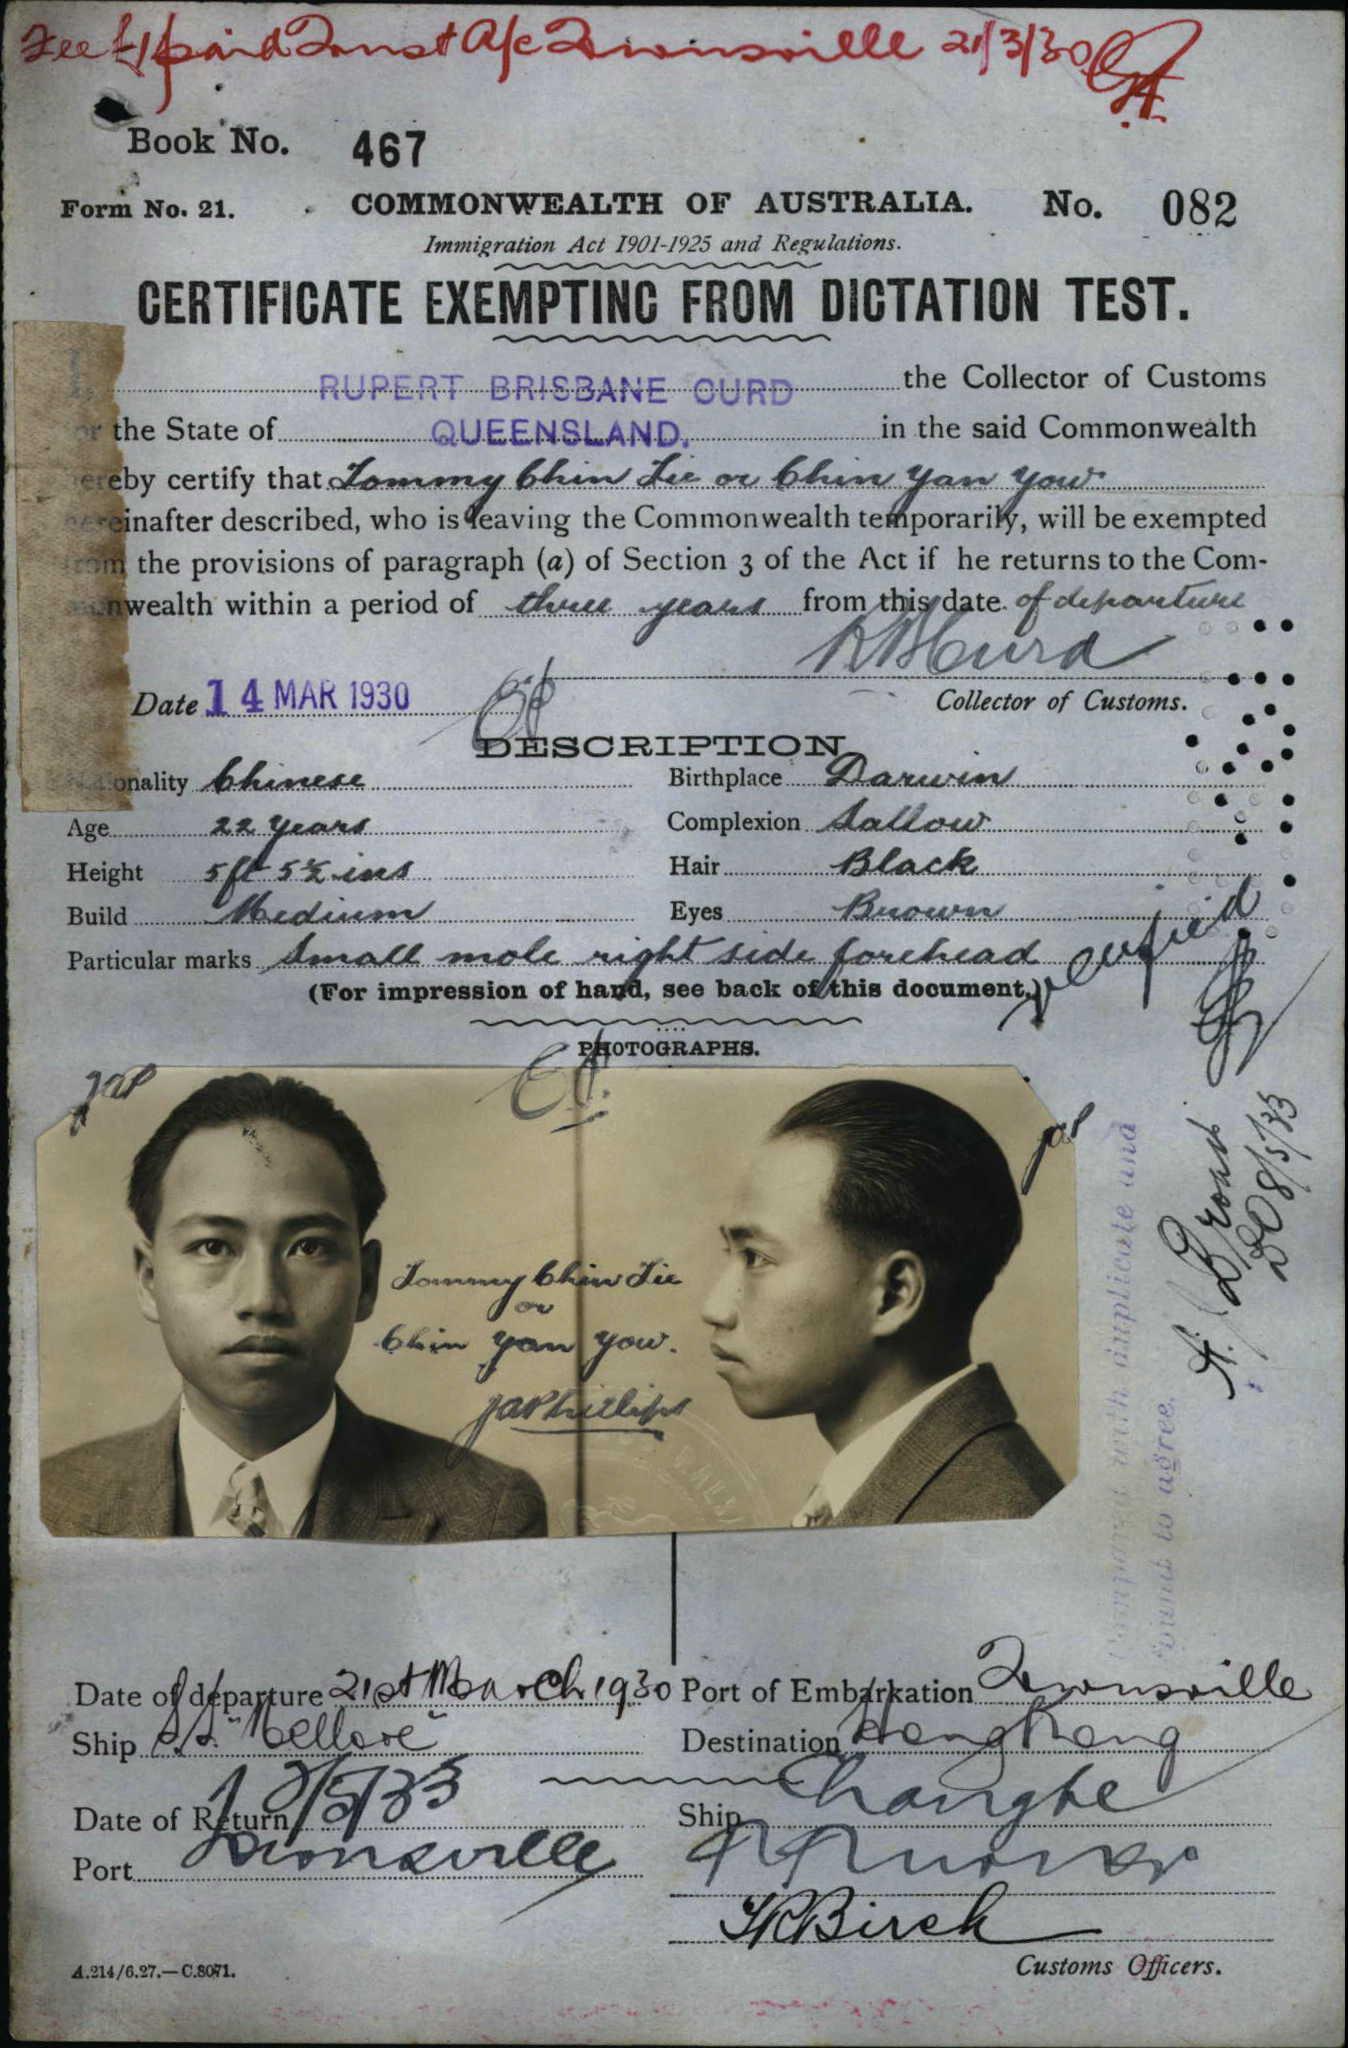 Fee £1 paid Trust A/c Townsville 21/3/30
Book No. 467
Form No. 21. COMMONWEALTH OF AUSTRALIA. No. 082
Immigration Act 1901-1925 and Regulations.
CERTIFICATE EXEMPTING FROM DICTATION TEST.
RUPERT BRISBANE CURD the Collector of Customs
the State of QUEENSLAND. in the said Commonwealth
hereby certify that Tommy Chin Tie or Chin Yan Yow
hereinafter described, who is leaving the Commonwealth temporarily, will be exempted
from the provisions of paragraph (a) of Section 3 of the Act if he returns to the Com-
monwealth within a period of three years from this date of departure
R B Curd
Date 14 MAR 1930 Collector of Customs.
DESCRIPTION
Nationality Chinese Birthplace Darwin
Age 22 years Complexion Sallow
Height 5 ft 5½ ins Hair Black
Build Medium Eyes Brown
Particular marks Small mole right side forehead
(For impression of hand, see back of this document.)
verified
PHOTOGRAPHS.
JAP JAP
Tommy Chin Tie
or
Chin Yan Yow.
JAPhillips
Compared with duplicate and
found to agree.
8/5/33
Date of departure 21st March 1930 Port of Embarkation Townsville
Ship S.S. "Mellore" Destination Hong Kong
Date of Return 8/5/33 Ship Changte
Port Townsville
Birch
A.214/6.27.—C.8071. Customs Officers.